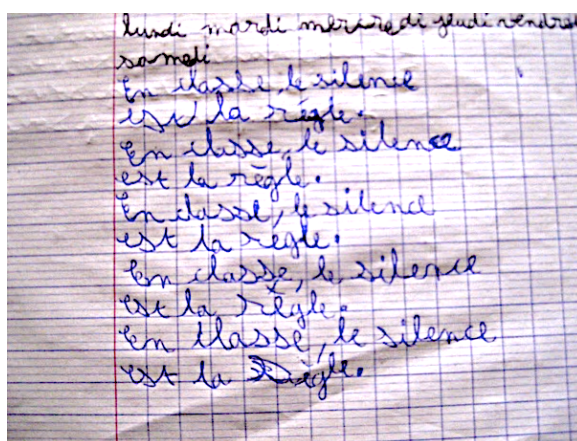 lundi mardi mercredi jeudi vendred
samedi
En classe, le silence
est la règle.
En classe, le silence
est la règle.
En classe, le silence
est la règle.
En classe, le silence
est la règle.
En classe, le silence
est la règle.